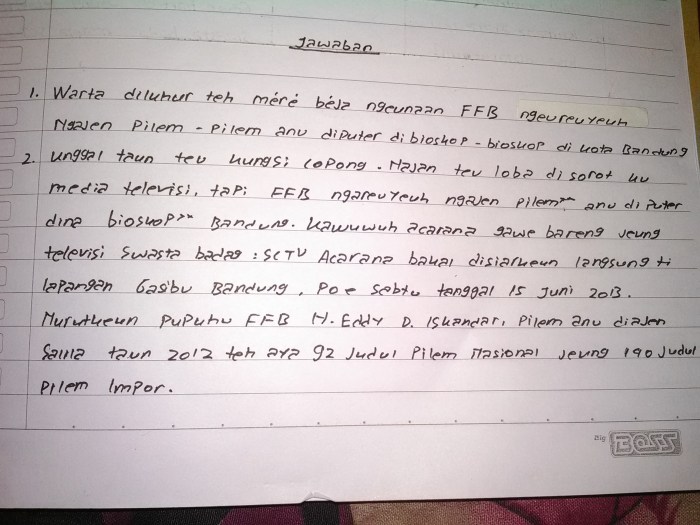 Jawaban
1. Warta diluhur teh méré béja ngeunaan FFB ngeureuyeuh
Ngajen Pilem - Pilem anu diputer dibioskop - bioskop di kota Bandung
2. unggal taun teu kungsi copong. Najan teu loba di sorot ku
media televisi, tapi FFB ngareuyeuh ngajen pilem" anu di Puter
dina bioskop" Bandung. Kawuwuh acarana gawe bareng jeung
televisi Swasta badag : SCTV Acarana bakal disiarkeun langsung ti
lapangan Gasibu Bandung, Poe Sabtu tanggal 15 Juni 2013.
Nurutkeun Pupuhu FFB H. Eddy D. Iskandar, Pilem anu diajen
Salila taun 2012 teh aya 92 Judul Pilem Nasional jeung 190 Judul
Pilem Impor.
Big BOSS